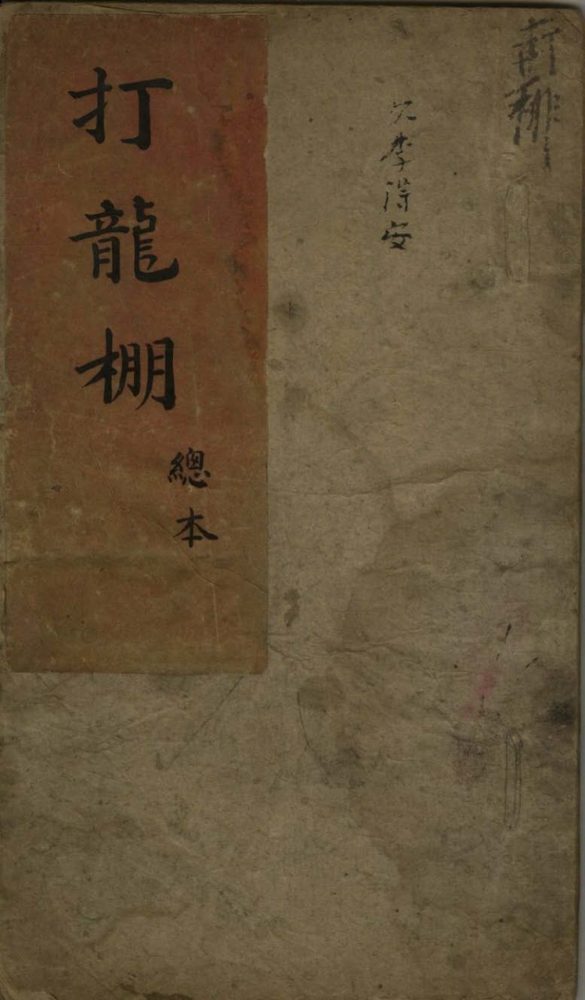 打龍棚
總本
李得安